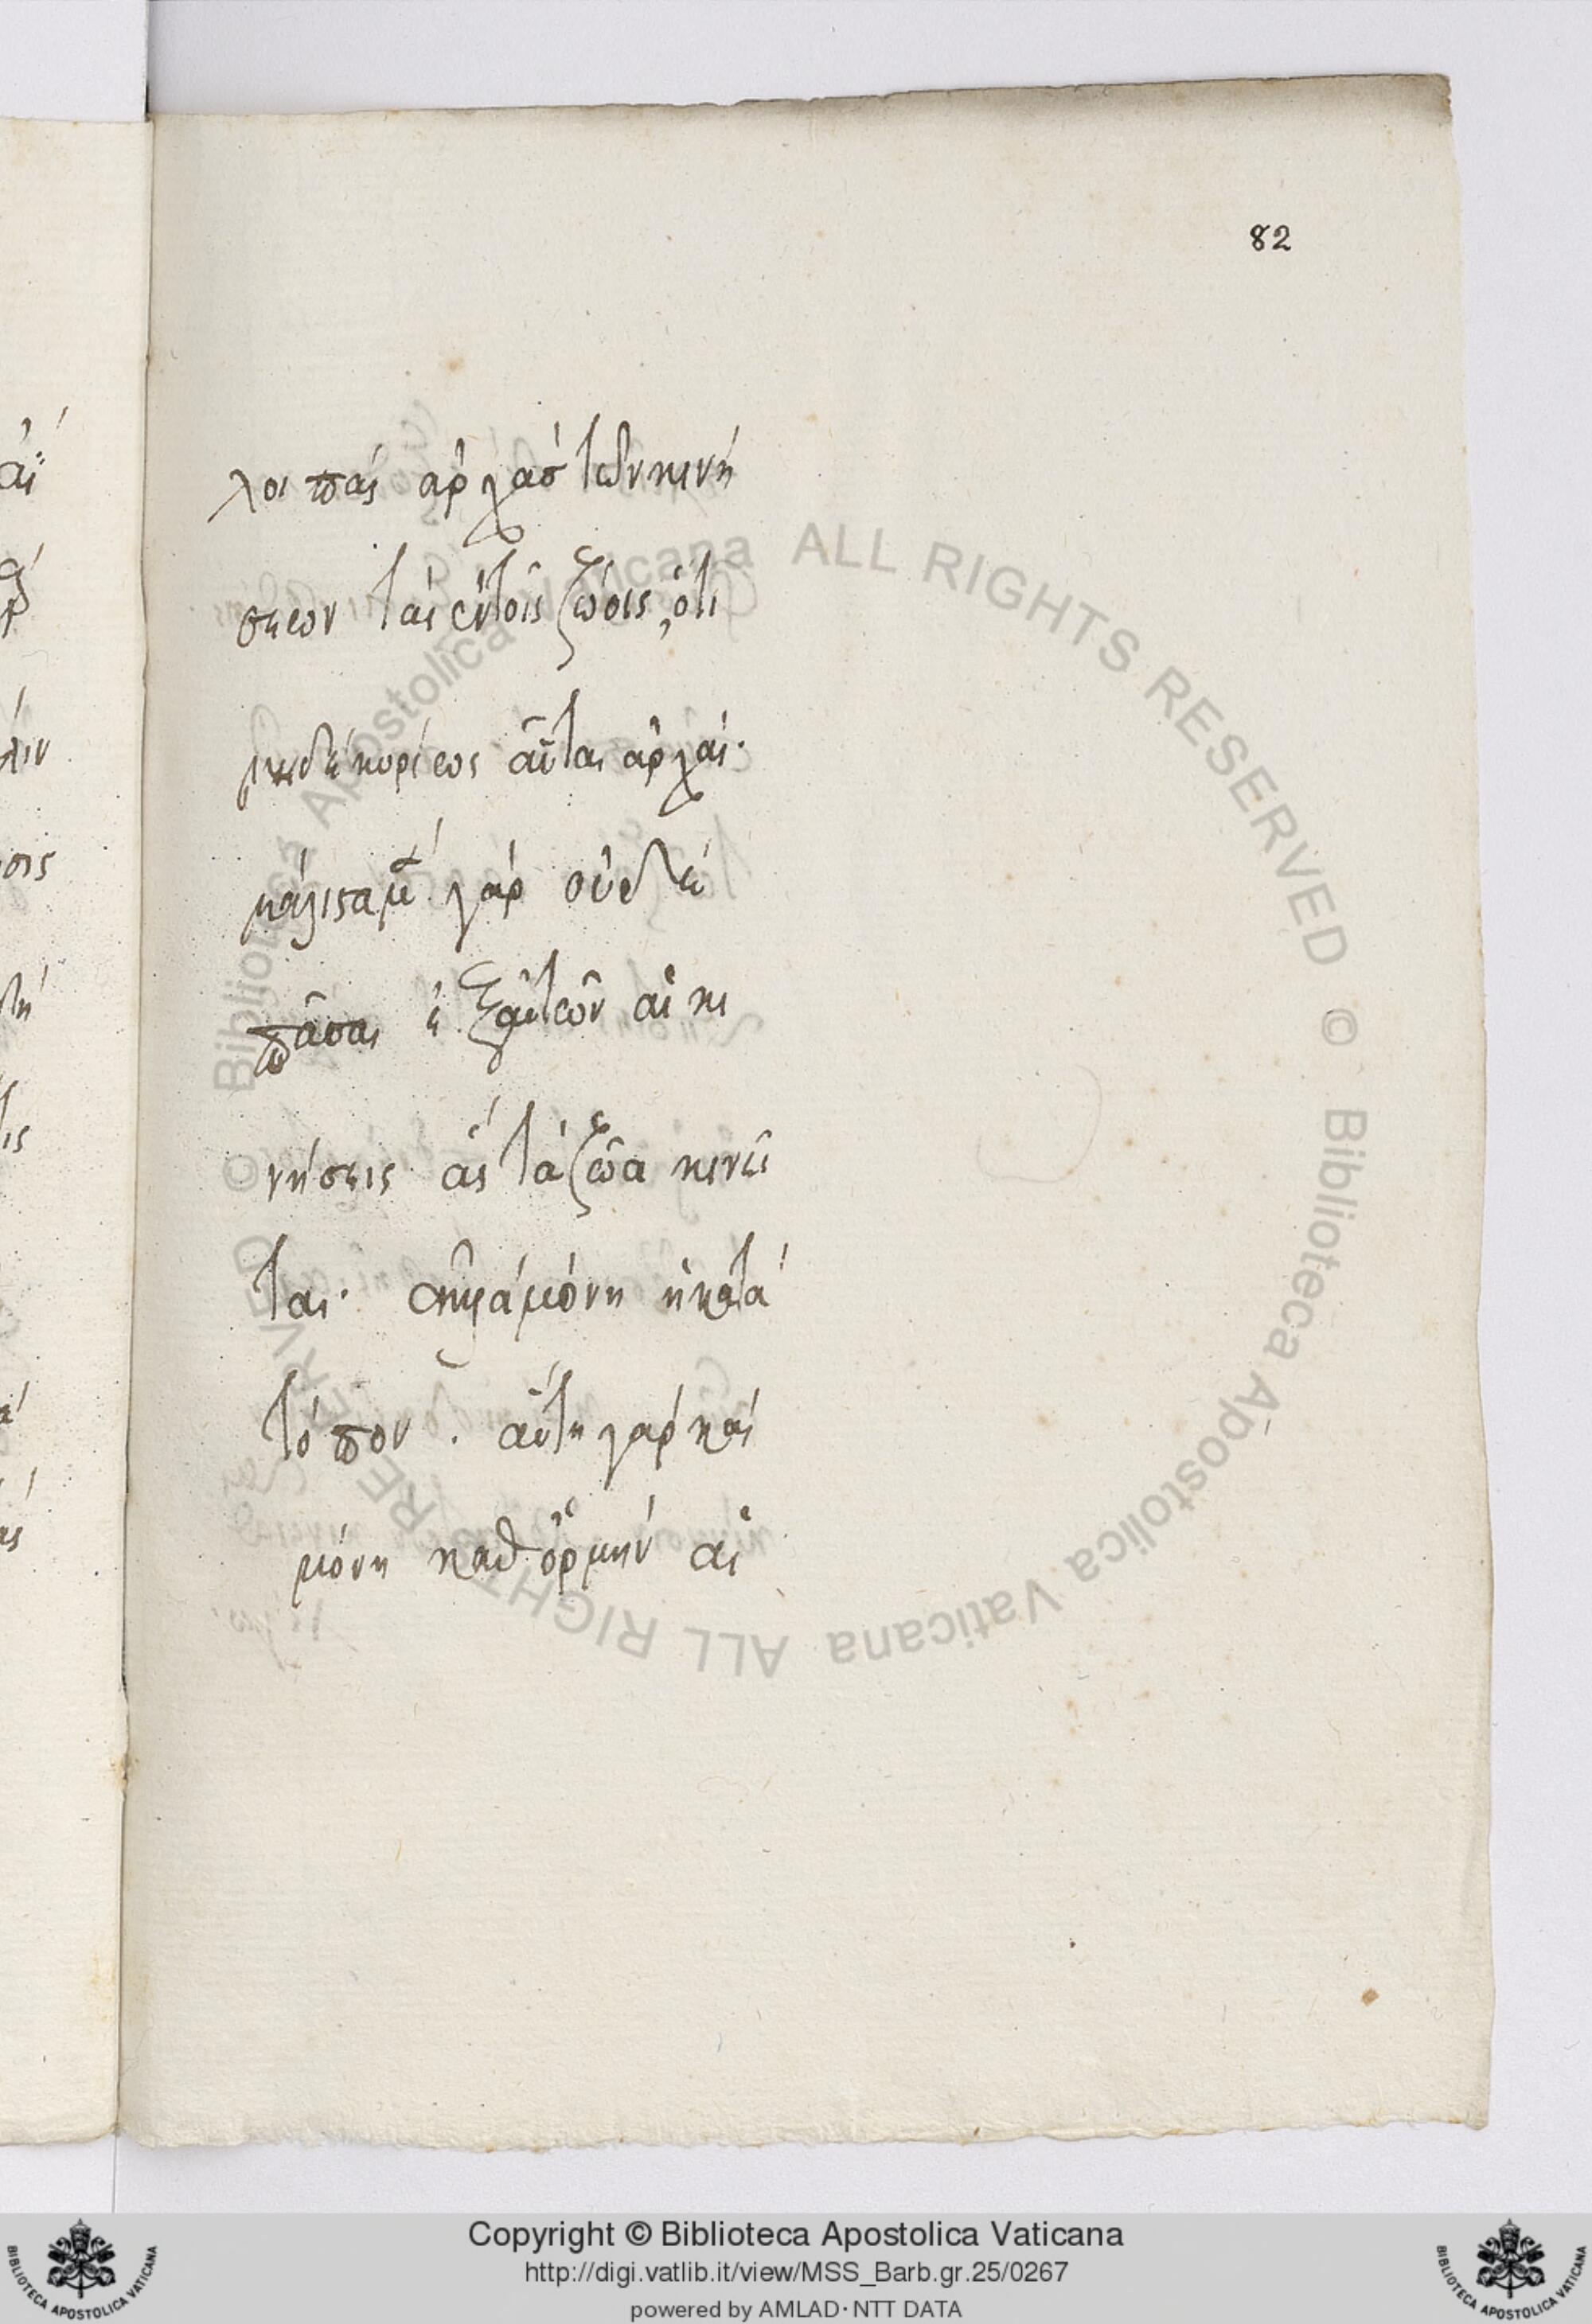 82
λοιπὰς ἀρχὰσ τῶν κινή
σεων ταῖς ἐν τοῖς ζώοις, ὅτι
μηδὲ κυρίως αὗται ἀρχαί·
μάλιστα μὲν γὰρ οὐδὲ
πᾶσαι ἐξ αὐτῶν αἱ κι
νήσεις ἃς τὰ ζῶα κινεῖ
ται· ἀλλὰ μόνη ἡ κατὰ
τόπον . αὕτη γὰρ καὶ
μόνη καθ ὁρμὴν αἱ
© Biblioteca Apostolica Vaticana ALL RIGHTS RESERVED © Biblioteca Apostolica Vaticana ALL RIGHTS RESERVED
Copyright © Biblioteca Apostolica Vaticana
http://digi.vatlib.it/view/MSS_Barb.gr.25/0267
powered by AMLAD·NTT DATA
BIBLIOTECA APOSTOLICA VATICANA
BIBLIOTECA APOSTOLICA VATICANA